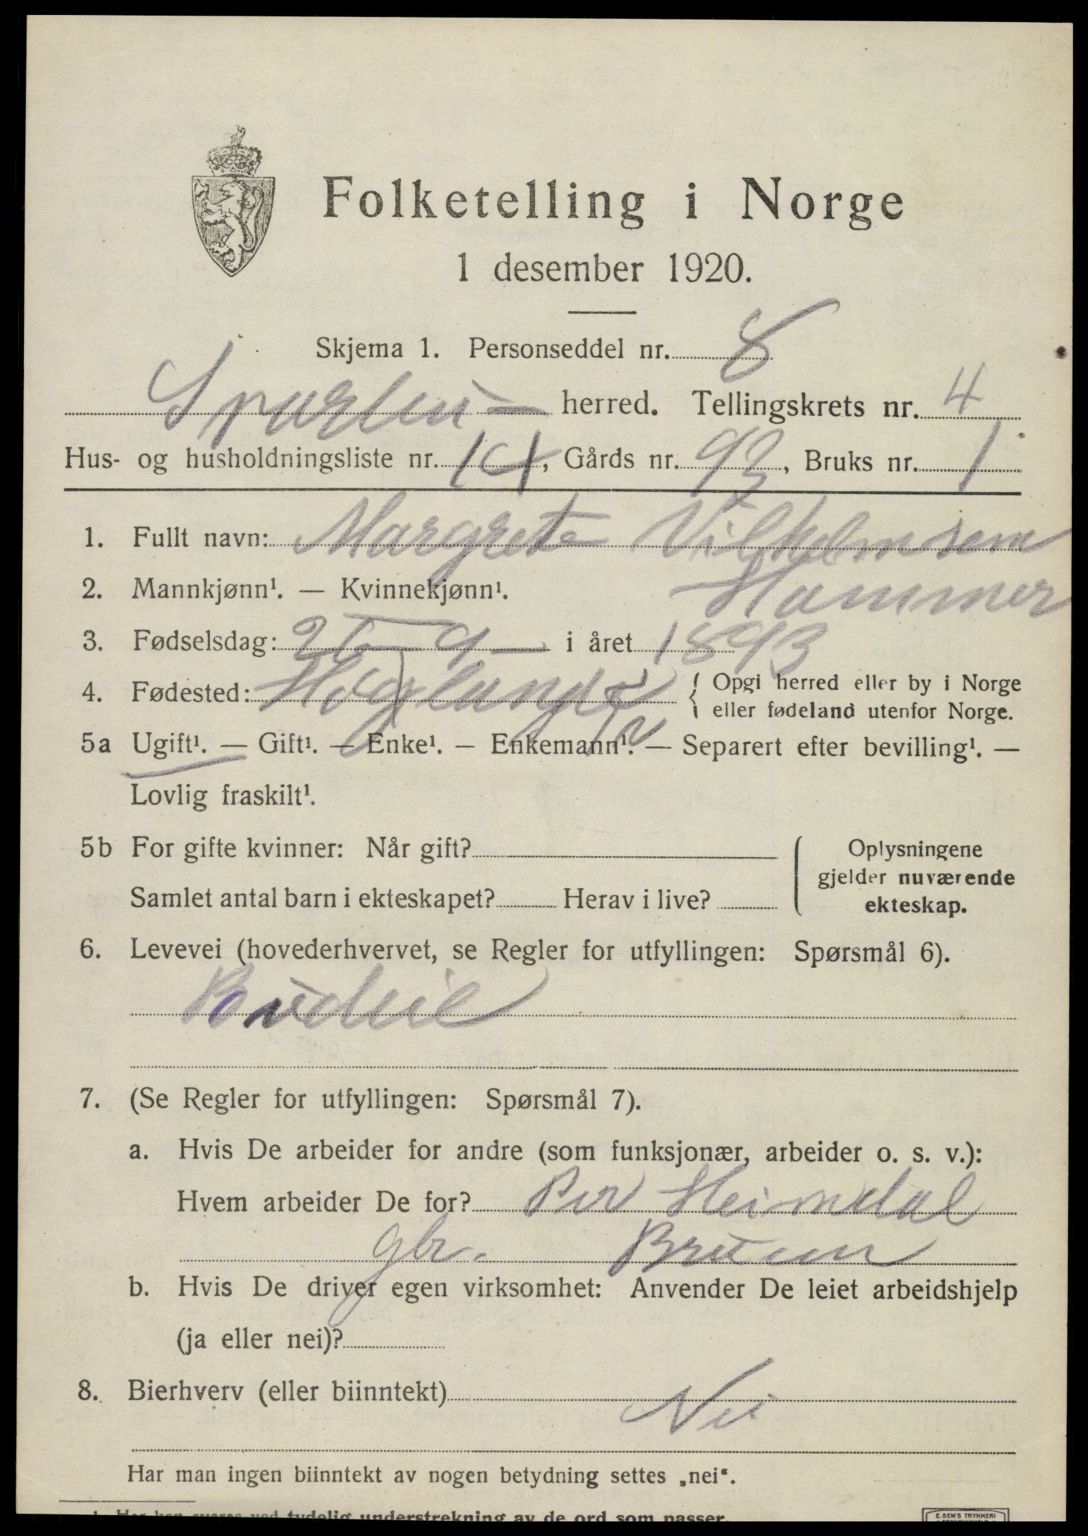 Folketelling i Norge
1 desember 1920.
Skjema 1. Personseddel nr. 8
Sparbu herred. Tellingskrets nr. 4
Hus- og husholdningsliste nr. 14, Gårds nr. 93, Bruks nr. 1
1. Fullt navn: Margrete Vilhelmsen
Hammer
2. Mannkjønn¹. — Kvinnekjønn¹.
3. Fødselsdag: 26 - 9 - i året 1893
4. Fødested: { Opgi herred eller by i Norge
eller fødeland utenfor Norge.
5a Ugift¹. — Gift¹. — Enke¹. — Enkemann¹. — Separert efter bevilling¹. —
Lovlig fraskilt¹.
5b For gifte kvinner: Når gift?
Samlet antal barn i ekteskapet? Herav i live?
Oplysningene
gjelder nuværende
ekteskap.
6. Levevei (hovederhvervet, se Regler for utfyllingen: Spørsmål 6).
Budeie
7. (Se Regler for utfyllingen: Spørsmål 7).
a. Hvis De arbeider for andre (som funksjonær, arbeider o. s. v.):
Hvem arbeider De for? Per Heimdal
gbr.
b. Hvis De driver egen virksomhet: Anvender De leiet arbeidshjelp
(ja eller nei)?
8. Bierhverv (eller biinntekt) Nei
Har man ingen biinntekt av nogen betydning settes „nei“.
¹ Her kan svares ved tydelig understrekning av de ord som passer.